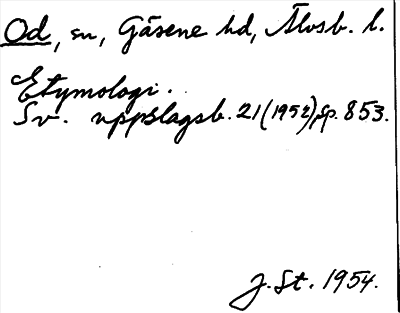 Od, sn, Gäsene hd, Älvsb. l.
Etymologi.
Sv. uppslagsb. 21 (1952), sp. 853.
J. St. 1954.